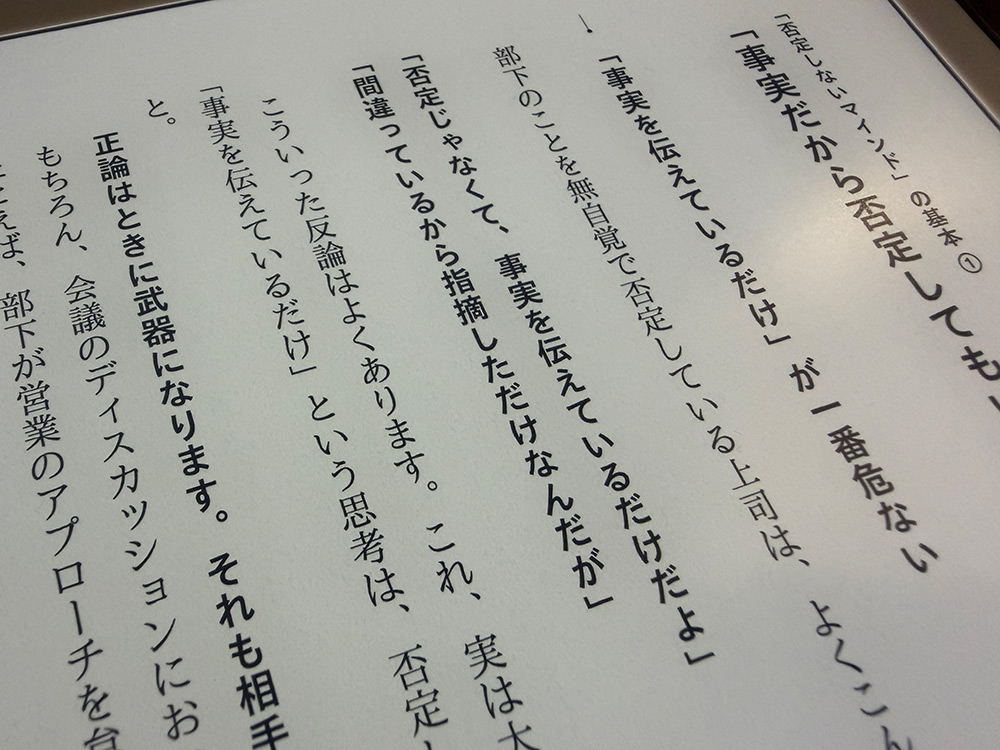 「否定しないマインド」の基本①
「事実だから否定しても
「事実を伝えているだけ」が一番危ない
部下のことを無自覚で否定している上司は、よくこん
「否定じゃなくて、事実を伝えているだけだよ」
「間違っているから指摘しただけなんだが」
こういった反論はよくあります。これ、実は大
「事実を伝えているだけ」という思考は、否定し
と。
正論はときに武器になります。それも相手
もちろん、会議のディスカッションにお
とえば、部下が営業のアプローチを怠